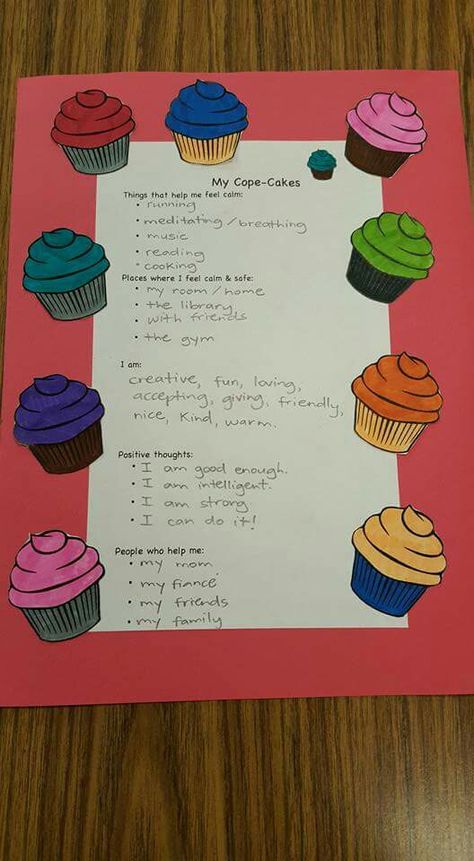 My Cope-Cakes
Things that help me feel calm:
• running
• meditating / breathing
• music
• reading
• cooking
Places where I feel calm & safe:
• my room / home
• the library
• with friends
• the gym
I am:
creative, fun, loving,
accepting, giving, friendly,
nice, kind, warm.
Positive thoughts:
• I am good enough.
• I am intelligent.
• I am strong
• I can do it!
People who help me:
• my mom
• my fiance
• my friends
• my family